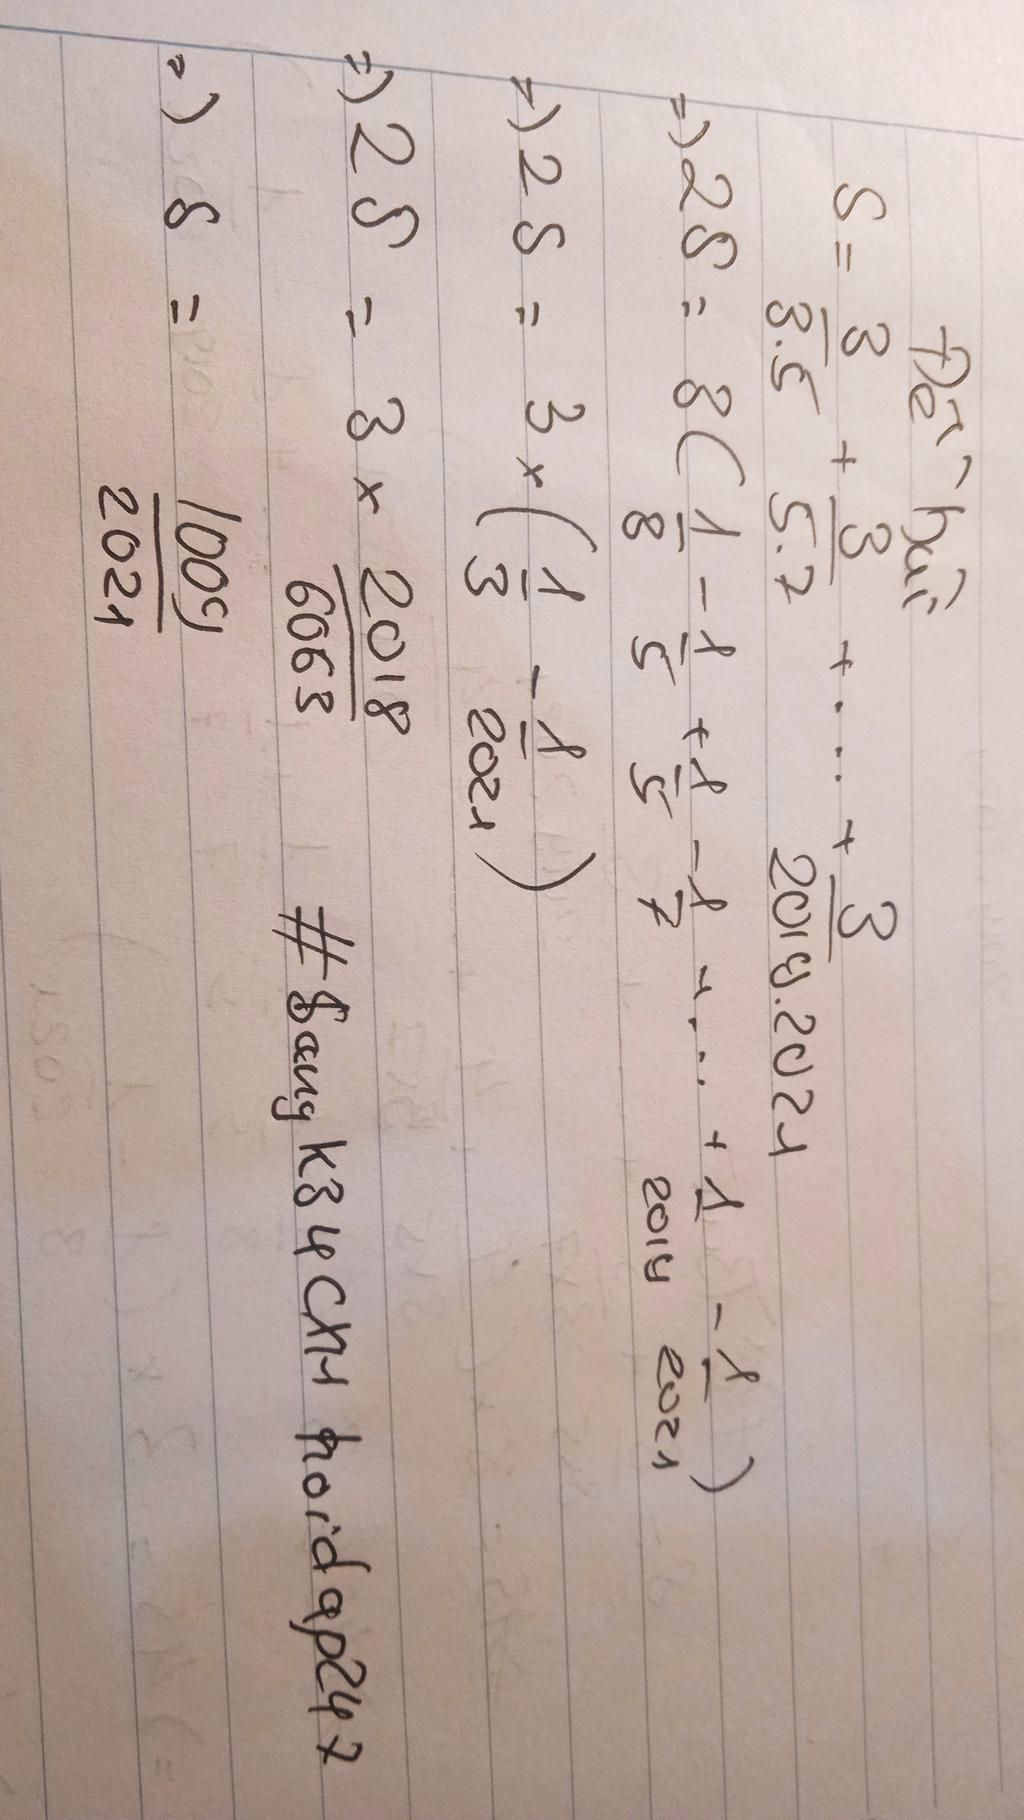 Đề bài
S = 3/3.5 + 3/5.7 + .... + 3/2019.2021
=) 2S = 3(1/3 - 1/5 + 1/5 - 1/7 + ... + 1/2019 - 1/2021)
=) 2S = 3 x (1/3 - 1/2021)
=) 2S = 3 x 2018/6063
=) S = 1009/2021
#Sangk34CTM hoidap247